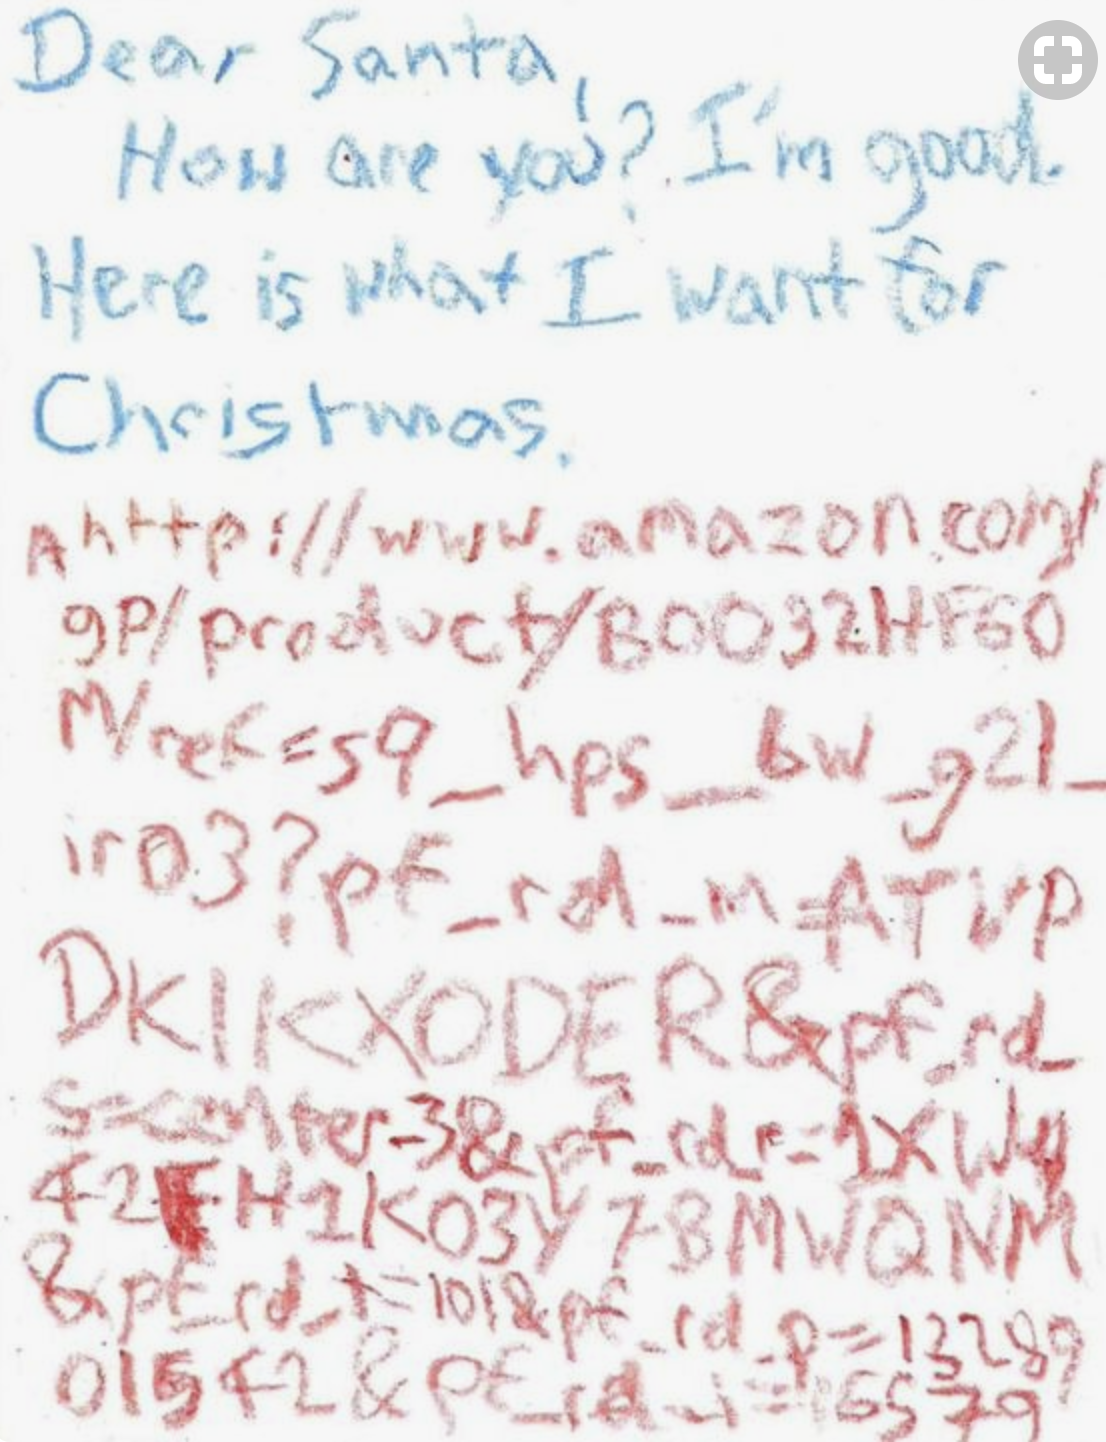 Dear Santa,
How are you? I'm good.
Here is what I want for
Christmas.
A http://www.amazon.com/
gp/product/B0032HF60
M/ref=s9_hps_bw_g21_
ir03?pf_rd_m=ATVP
DKIKX0DER&pf_rd_
s=center-3&pf_rd_r=1XW4
42FH1K03Y7BMWQNM
&pf_rd_t=101&pf_rd_p=13289
01542&pf_rd_i=165579